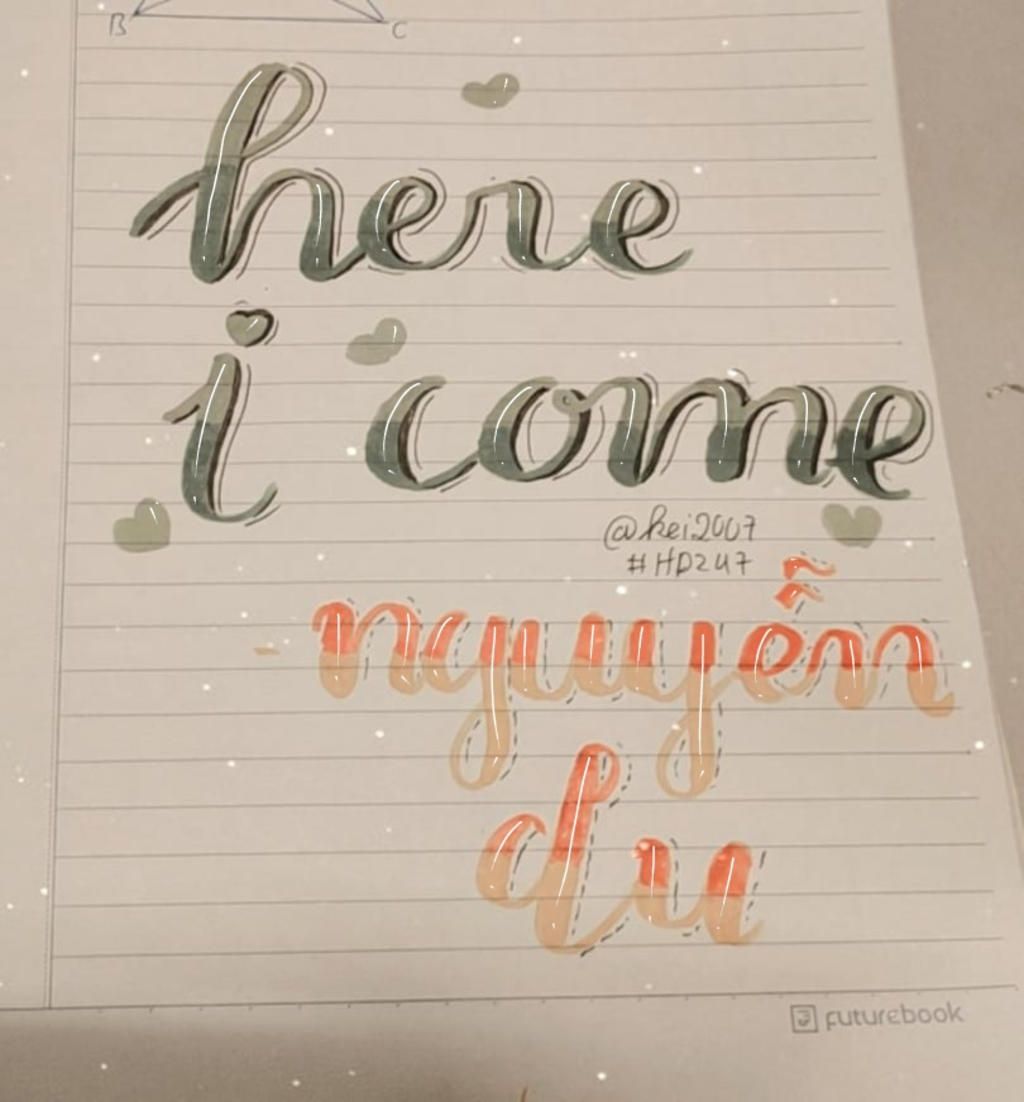 B C
here
i come
@kei2007
#HD247
nguyễn
du
futurebook